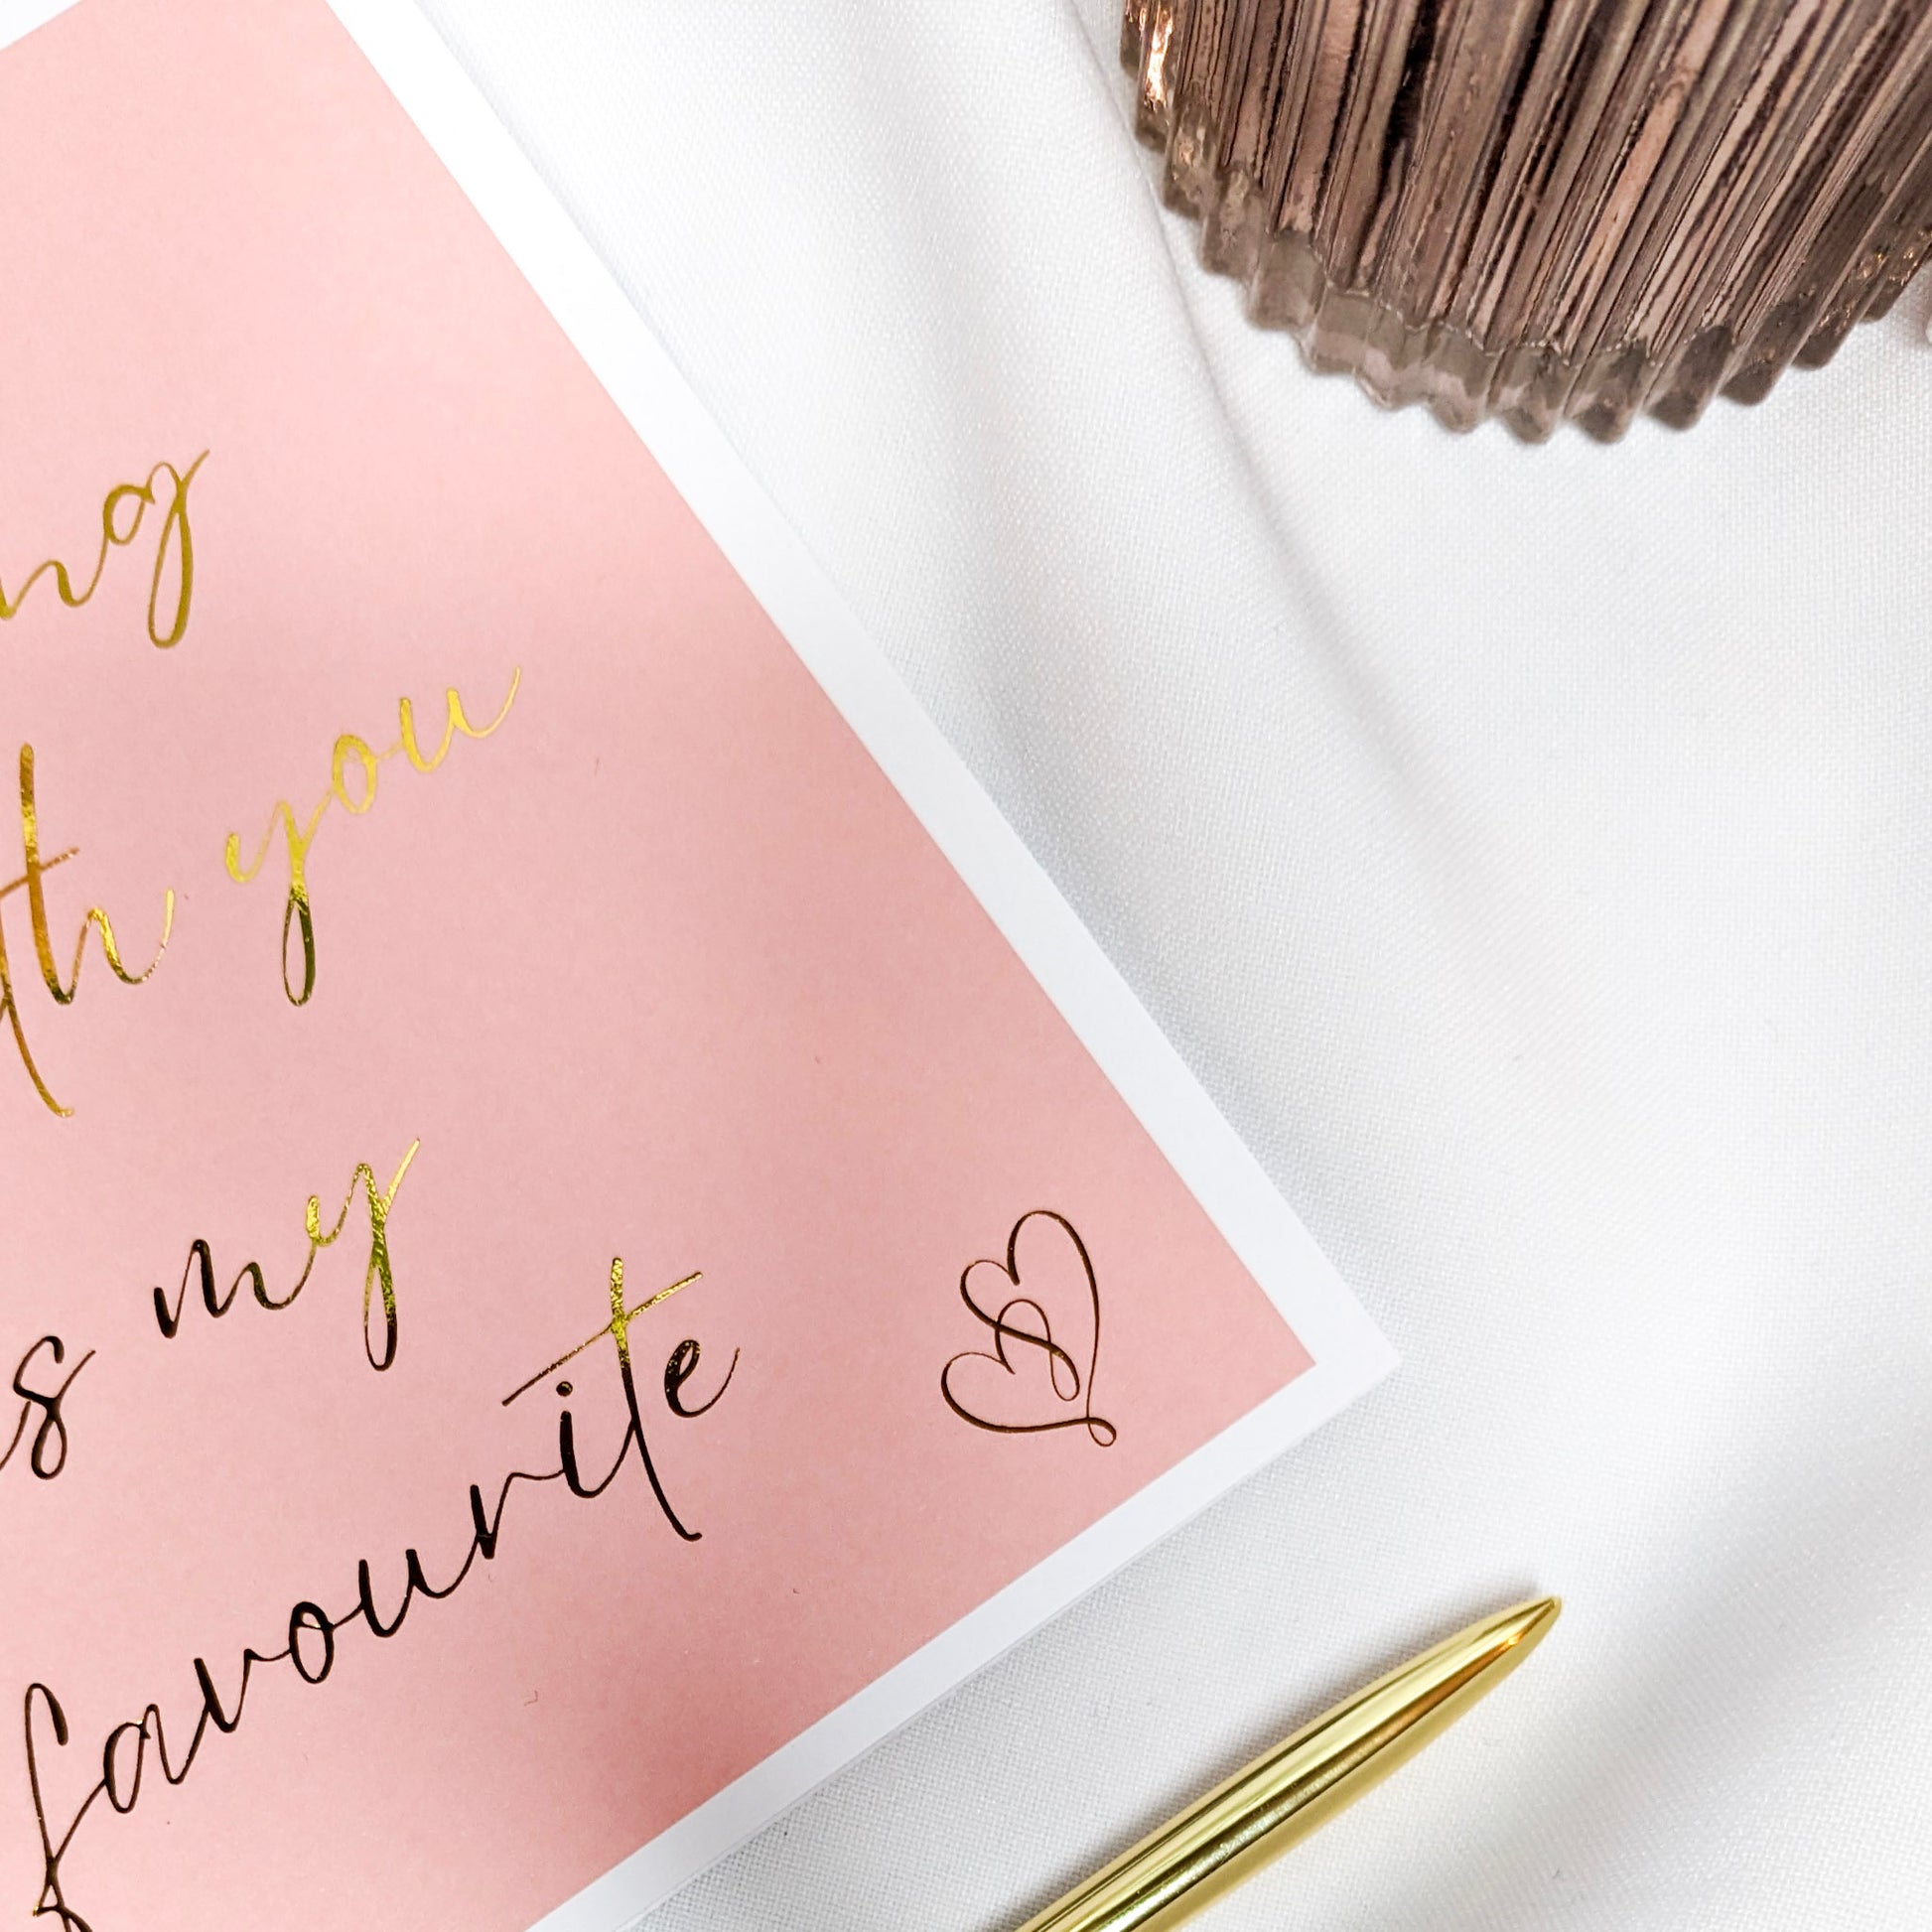 ng
th you
s my
favourite